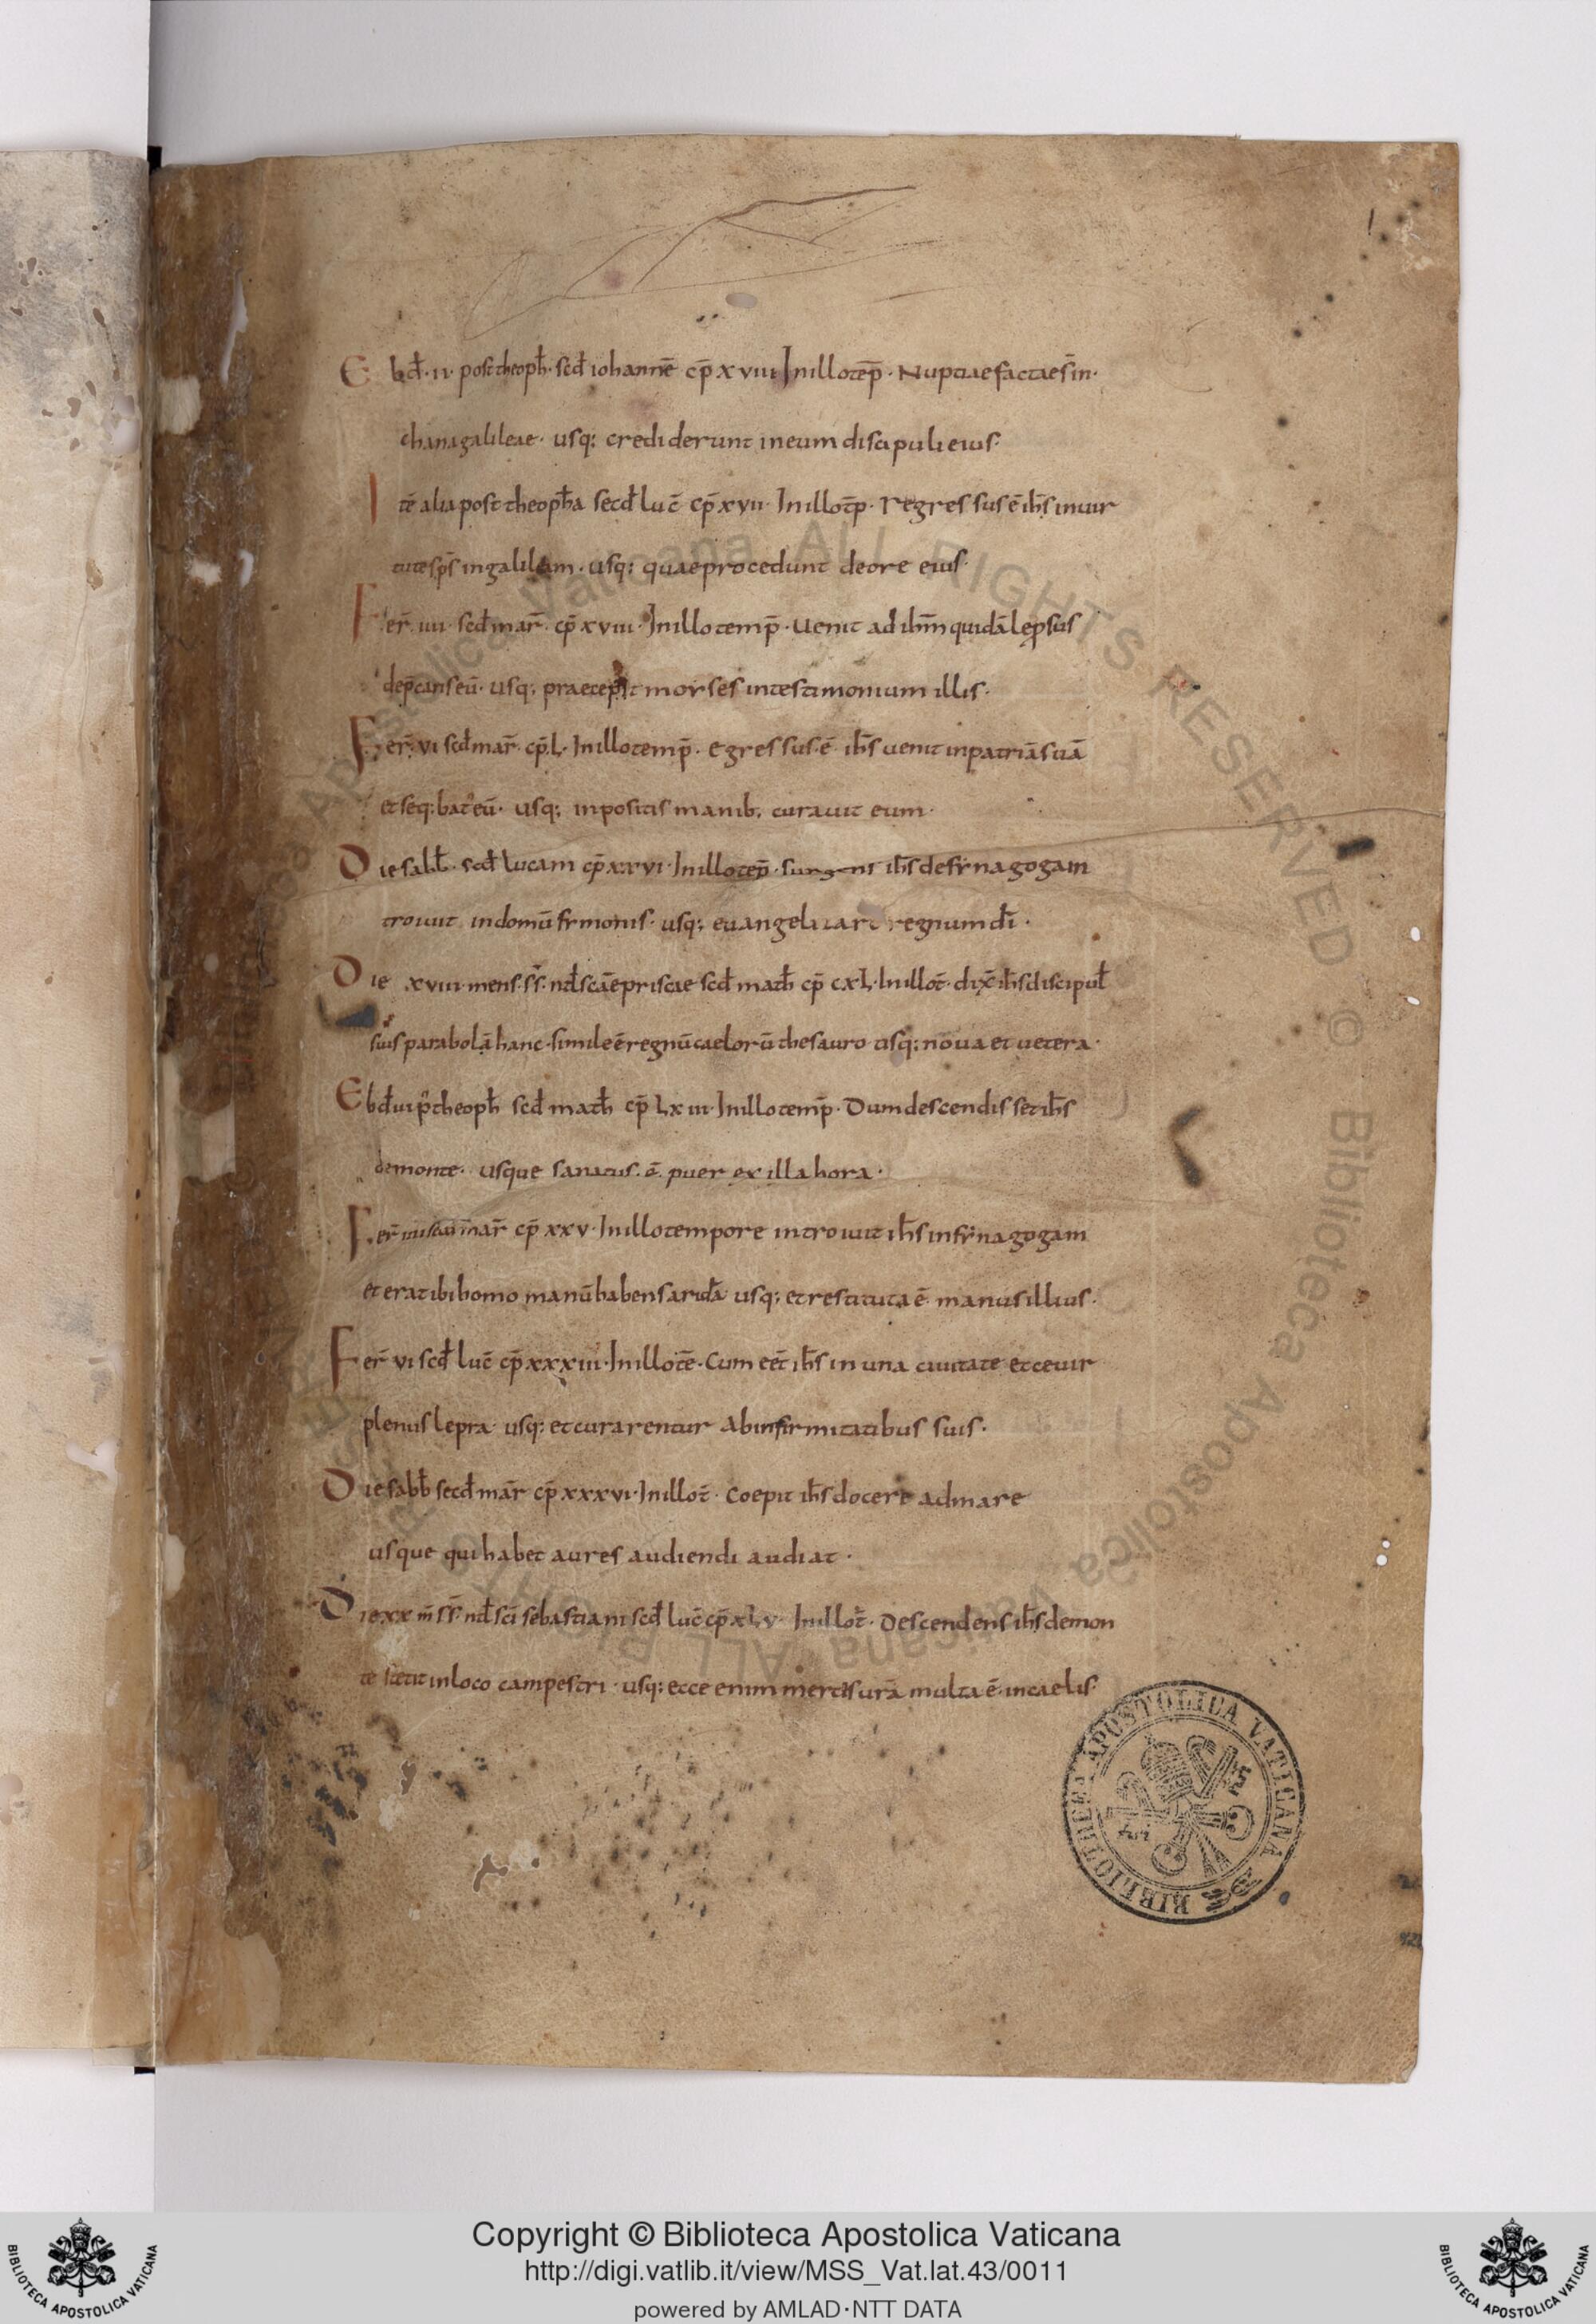 1
Ebd̄·ii· post theoph̄· scd̄ iohannē cp̄ xviii In illo tep̄· Nuptiae factae s̄ in·
chanagalileae· usq; crediderunt in eum discipuli eius·
Itē alia post theoph̄a secd̄ luc̄ cp̄ xvii· In illo tp̄· Regressus ē ih̄s in uir
tute sp̄s in galileam· usq; quae procedunt de ore eius·
Fer̄ iiii· scd̄ mar̄· cp̄ xviii· In illo temp̄· Uenit ad ih̄m quidā lep̄sus
dep̄cans eū· usq; praecepit moyses in testimonium illis·
Fer̄ vi scd̄ mar̄· cp̄ L· In illo temp̄· egressus ē ih̄s uenit in patriā suā
et seq;bat͛ eū· usq; inpositis manib; curauit eum·
Die sabb̄· scd̄ lucam cp̄ xxvi· In illo tep̄· surgens ih̄s de synagogam
troiuit in domū symonis· usq; euangelizare regnum dī·
Die xviii mens· s̄s· nt̄l scāe priscae scd̄ math̄ cp̄ cxL· In illo t̄· dix̄ ih̄s discipul̄
suis parabolā hanc· simile ē regnū caelorū thesauro usq; noua et uetera·
Ebd̄ iii p͛ theoph̄ scd̄ math̄ cp̄ Lxiii· In illo temp̄· Dum descendisset ih̄s
de monte· usque sanatus· ē· puer ex illa hora·
Fer̄ iiii scd̄ mar̄ cp̄ xxv· In illo tempore introiuit ih̄s in synagogam
et erat ibi homo manū habens aridā usq; et restituta ē manus illius·
Fer̄ vi scd̄ luc̄ cp̄ xxxiii· In illo tē· Cum eēt ih̄s in una ciuitate et ecce uir
plenus lepra usq; et curarentur ab infirmitatibus suis·
Die sabb̄ secd̄ mar̄ cp̄ xxxvi· In illo t̄· Coepit ih̄s docere ad mare
usque qui habet aures audiendi audiat·
Die xx m̄ s̄s· nt̄l scī sebastiani scd̄ luc̄ cp̄ xLv· In illo t̄· Descendens ih̄s de mon
te stetit in loco campestri· usq; ecce enim merces urā multa ē in caelis·
BIBLIOTHECA APOSTOLICA VATICANA
Copyright © Biblioteca Apostolica Vaticana
http://digi.vatlib.it/view/MSS_Vat.lat.43/0011
powered by AMLAD·NTT DATA
BIBLIOTECA APOSTOLICA VATICANA
BIBLIOTECA APOSTOLICA VATICANA
Biblioteca Apostolica Vaticana ALL RIGHTS RESERVED ©